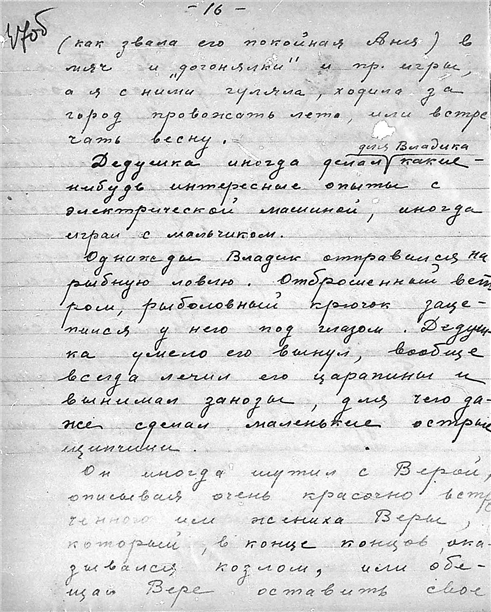 - 16 -
47об
(как звала его покойная Аня) в
мяч и „догонялки" и пр. игры,
а я с ними гуляла, ходила за
город провожать лето, или встре
чать весну.
для Владика
Дедушка иногда делал какие-
нибудь интересные опыты с
электрической машиной, иногда
играл с мальчиком.
Однажды Владик отправился на
рыбную ловлю. Отброшенный вет
ром, рыболовный крючок заце-
пился у него под глазом. Дедуш
ка умело его вынул, вообще
всегда лечил его царапины и
вынимал занозы, для чего да-
же сделал маленькие острые
щипчики.
Он иногда шутил с Верой,
описывая очень красочно встре
ченного им жениха Веры,
который, в конце концов, ока
зывался козлом, или обе-
щал Вере оставить свое